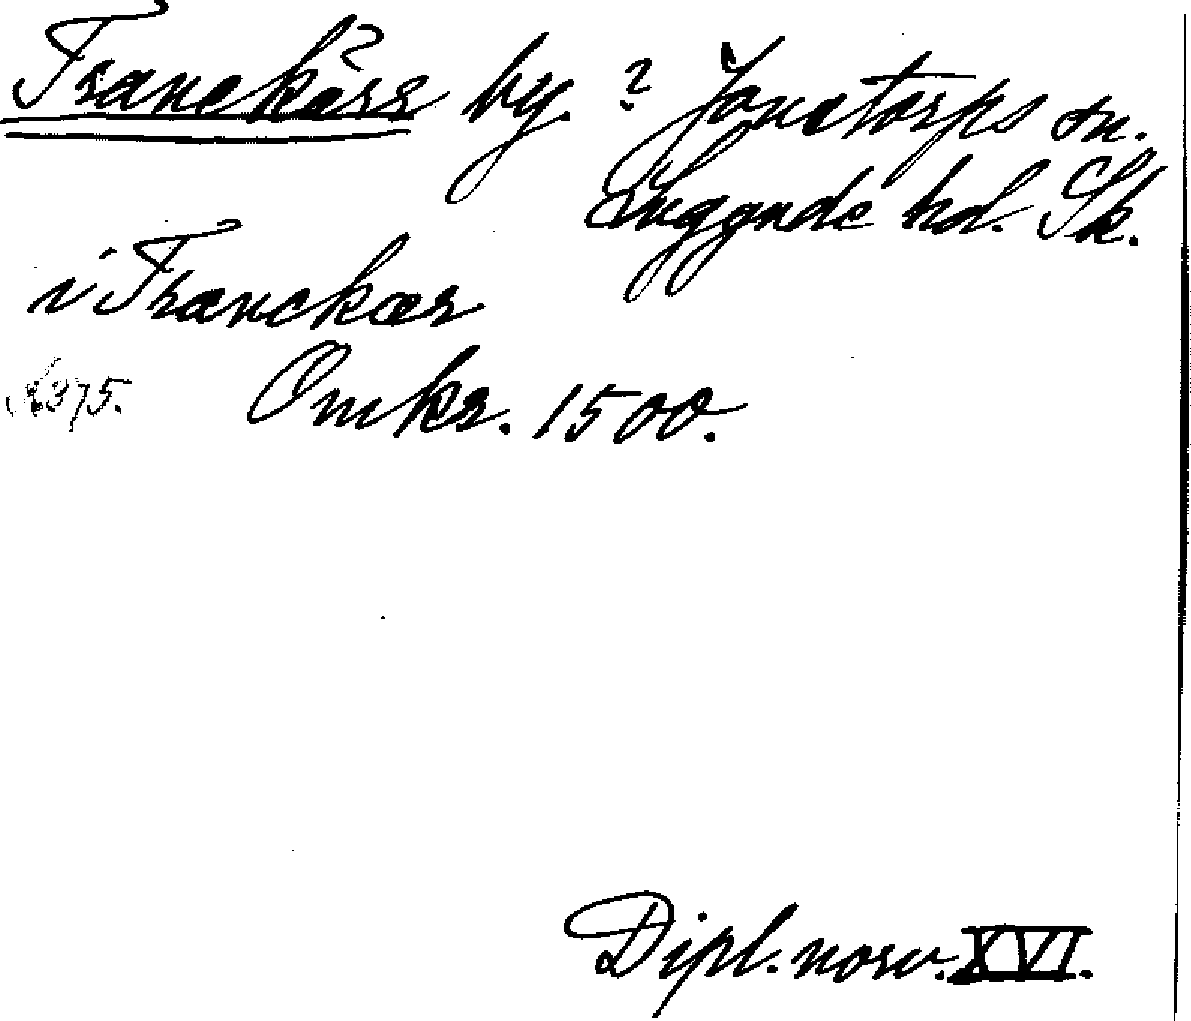 Tranekärr by. ? Jonstorps sn.
Luggude hd. Sk.
i Tranekær
s. 375. Omkr. 1500.
Dipl. norv. XVI.